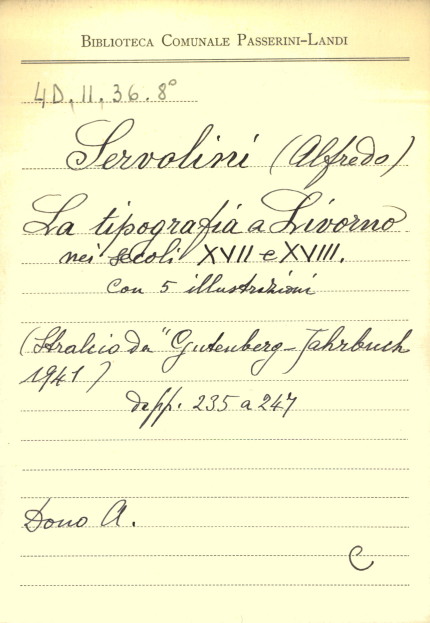 BIBLIOTECA COMUNALE PASSERINI-LANDI
4D, 11, 36. 8°
Servolini (Alfredo)
La tipografia a Livorno
nei secoli XVII e XVIII.
con 5 illustrazioni
(Stralcio da "Gutenberg-Jahrbuch
1941)
da pp. 235 a 247
Dono A.
C